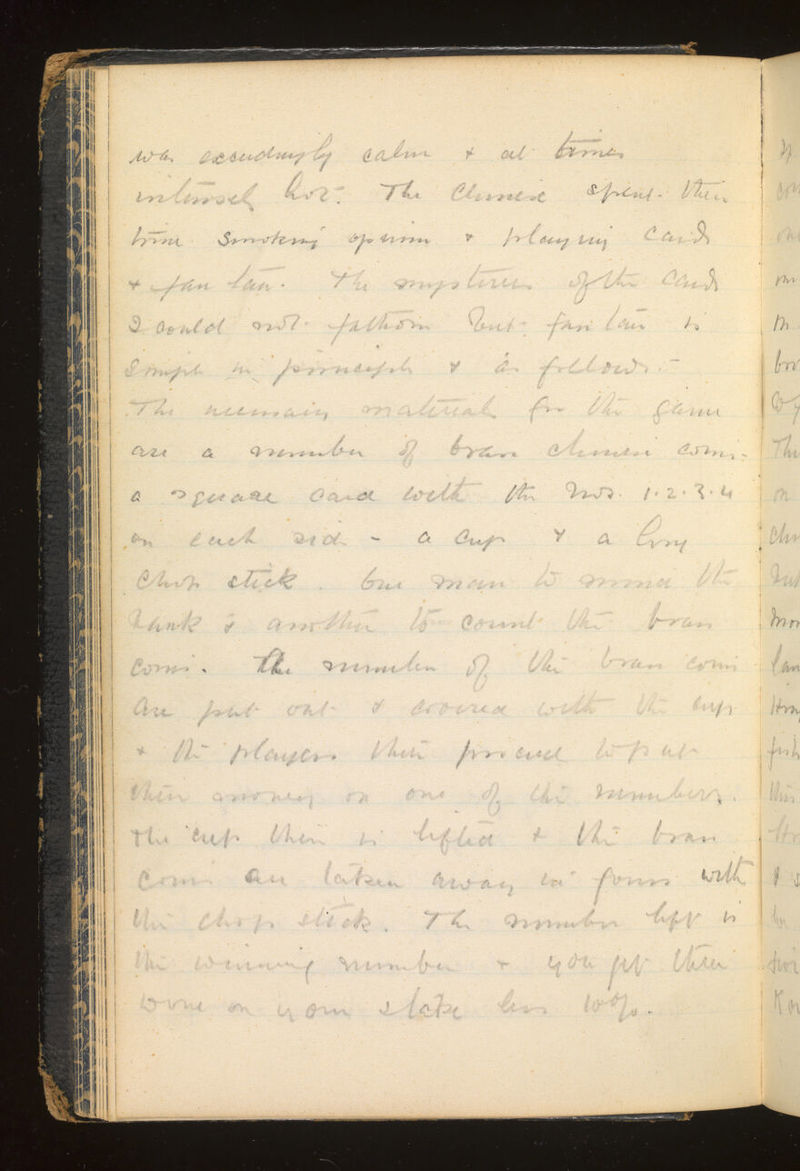 was exceedingly calm & at times
intensely hot. The Chinese spent their
time smoking opium & playing cards
& fan tan. The mysteries of the cards
I could not fathom but fan tan is
simple in principle & as follows:-
The necessary materials for the game
are a number of brass chinese coins -
a square card with the Nos. 1.2.3.4
on each side - a cup & a long
chop stick. One man to mind the
bank & another to count the brass
coins. The number of the brass coins
are put out & covered with the cup
& the players then proceed to put
their money on one of the numbers.
The cup then is lifted & the brass
coins are taken away in fours with
the chop stick. The number left is
the winning number & you get three
on your stake less 10%.